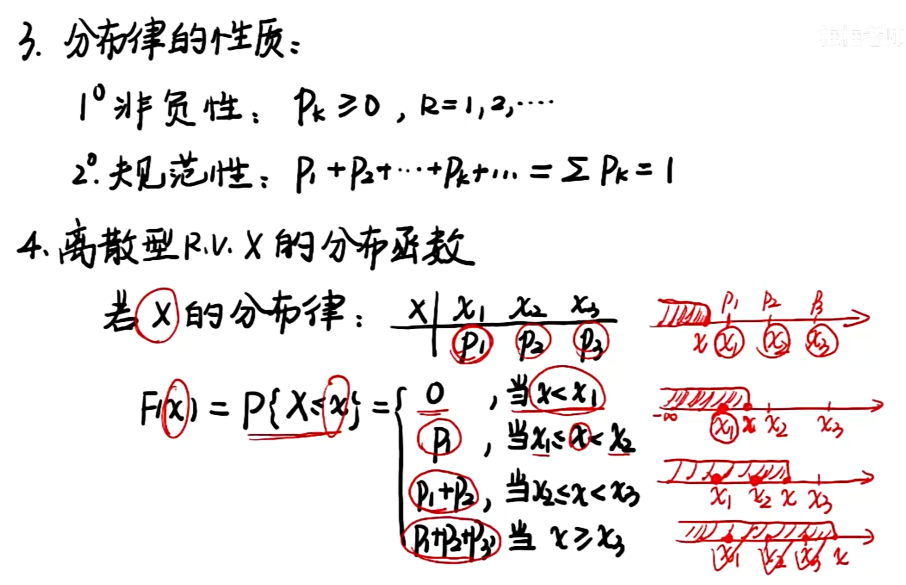 3. 分布律的性质:
1° 非负性: Pk ≥ 0, k = 1, 2, ....
2°. 规范性: P1 + P2 + ... + Pk + ... = Σ Pk = 1
4. 离散型 R.V. X 的分布函数
若 X 的分布律: X | x1 x2 x3
P1 P2 P3
F(x) = P{X ≤ x} = { 0, 当 x < x1
P1, 当 x1 ≤ x < x2
P1+P2, 当 x2 ≤ x < x3
P1+P2+P3, 当 x ≥ x3
P1 P2 P3
x x1 x2 x3
-∞ x1 x x2 x3
x1 x2 x x3
x1 x2 x3 x